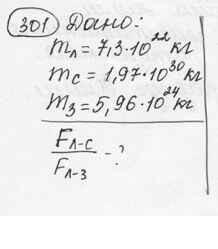 301 Дано:
mл = 7,3·10²² кг
mс = 1,97·10³⁰ кг
mз = 5,96·10²⁴ кг
Fл-с
Fл-з
-?